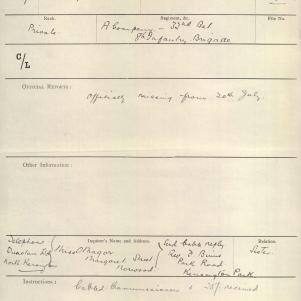 Rank.
Regiment, &c.
File No.
Private
A Company - 32nd Bat.
8th Infantry Brigade
C/L
OFFICIAL REPORTS:
Officially missing from 20th July
Other Information:
Inquirer's Name and Address.
Relation.
Telephone
North Kensington
Miss O'
Margaret Street
Norwood
Send Cable reply
Rev. F. Burns
Park Road
Kensington Park.
Sister.
Instructions:
Cabled Commissioners & received